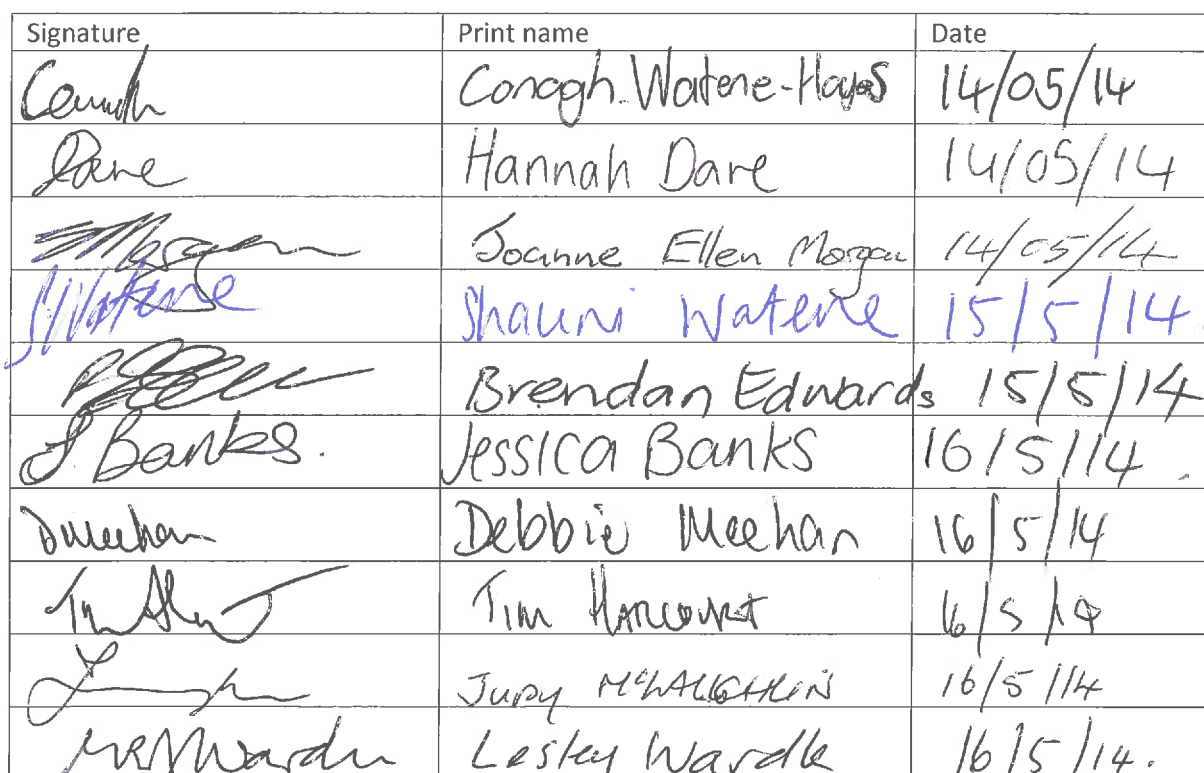 Signature Print name Date
Conagh Watene-Hayes 14/05/14
Dare Hannah Dare 14/05/14
Morgan Joanne Ellen Morgan 14/05/14
SWatene Shauni Watene 15/5/14
Brendan Edwards 15/5/14
J Banks. Jessica Banks 16/5/14
DMeehan Debbie Meehan 16/5/14
Tim Harcourt 16/5/14
Judy McLAUGHLIN 16/5/14
Lesley Wardle 16/5/14.